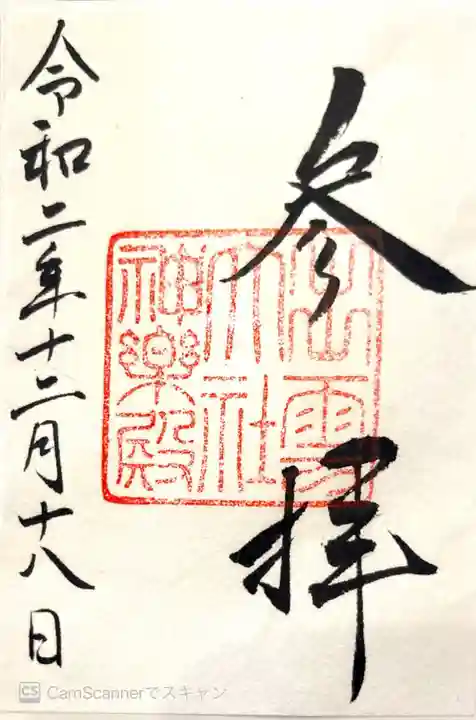 参拝
出雲
大社
神楽殿
令和二年十二月十八日
CS CamScannerでスキャン